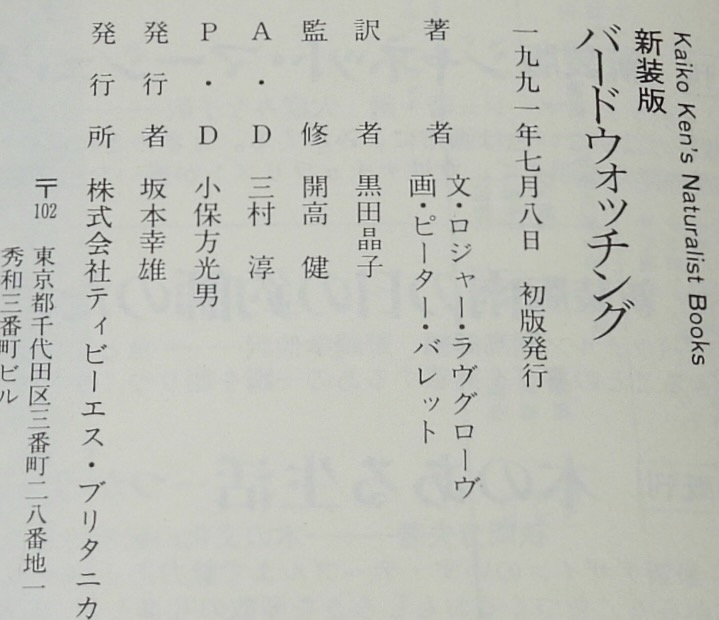 Kaiko Ken's Naturalist Books
新装版
バードウォッチング
一九九一年七月八日 初版発行
著者 文・ロジャー・ラヴグローヴ
画・ピーター・バレット
訳者 黒田晶子
監修 開高 健
A・D 三村 淳
P・D 小保方光男
発行者 坂本幸雄
発行所 株式会社ティビーエス・ブリタニカ
〒102 東京都千代田区三番町二八番地一
秀和三番町ビル